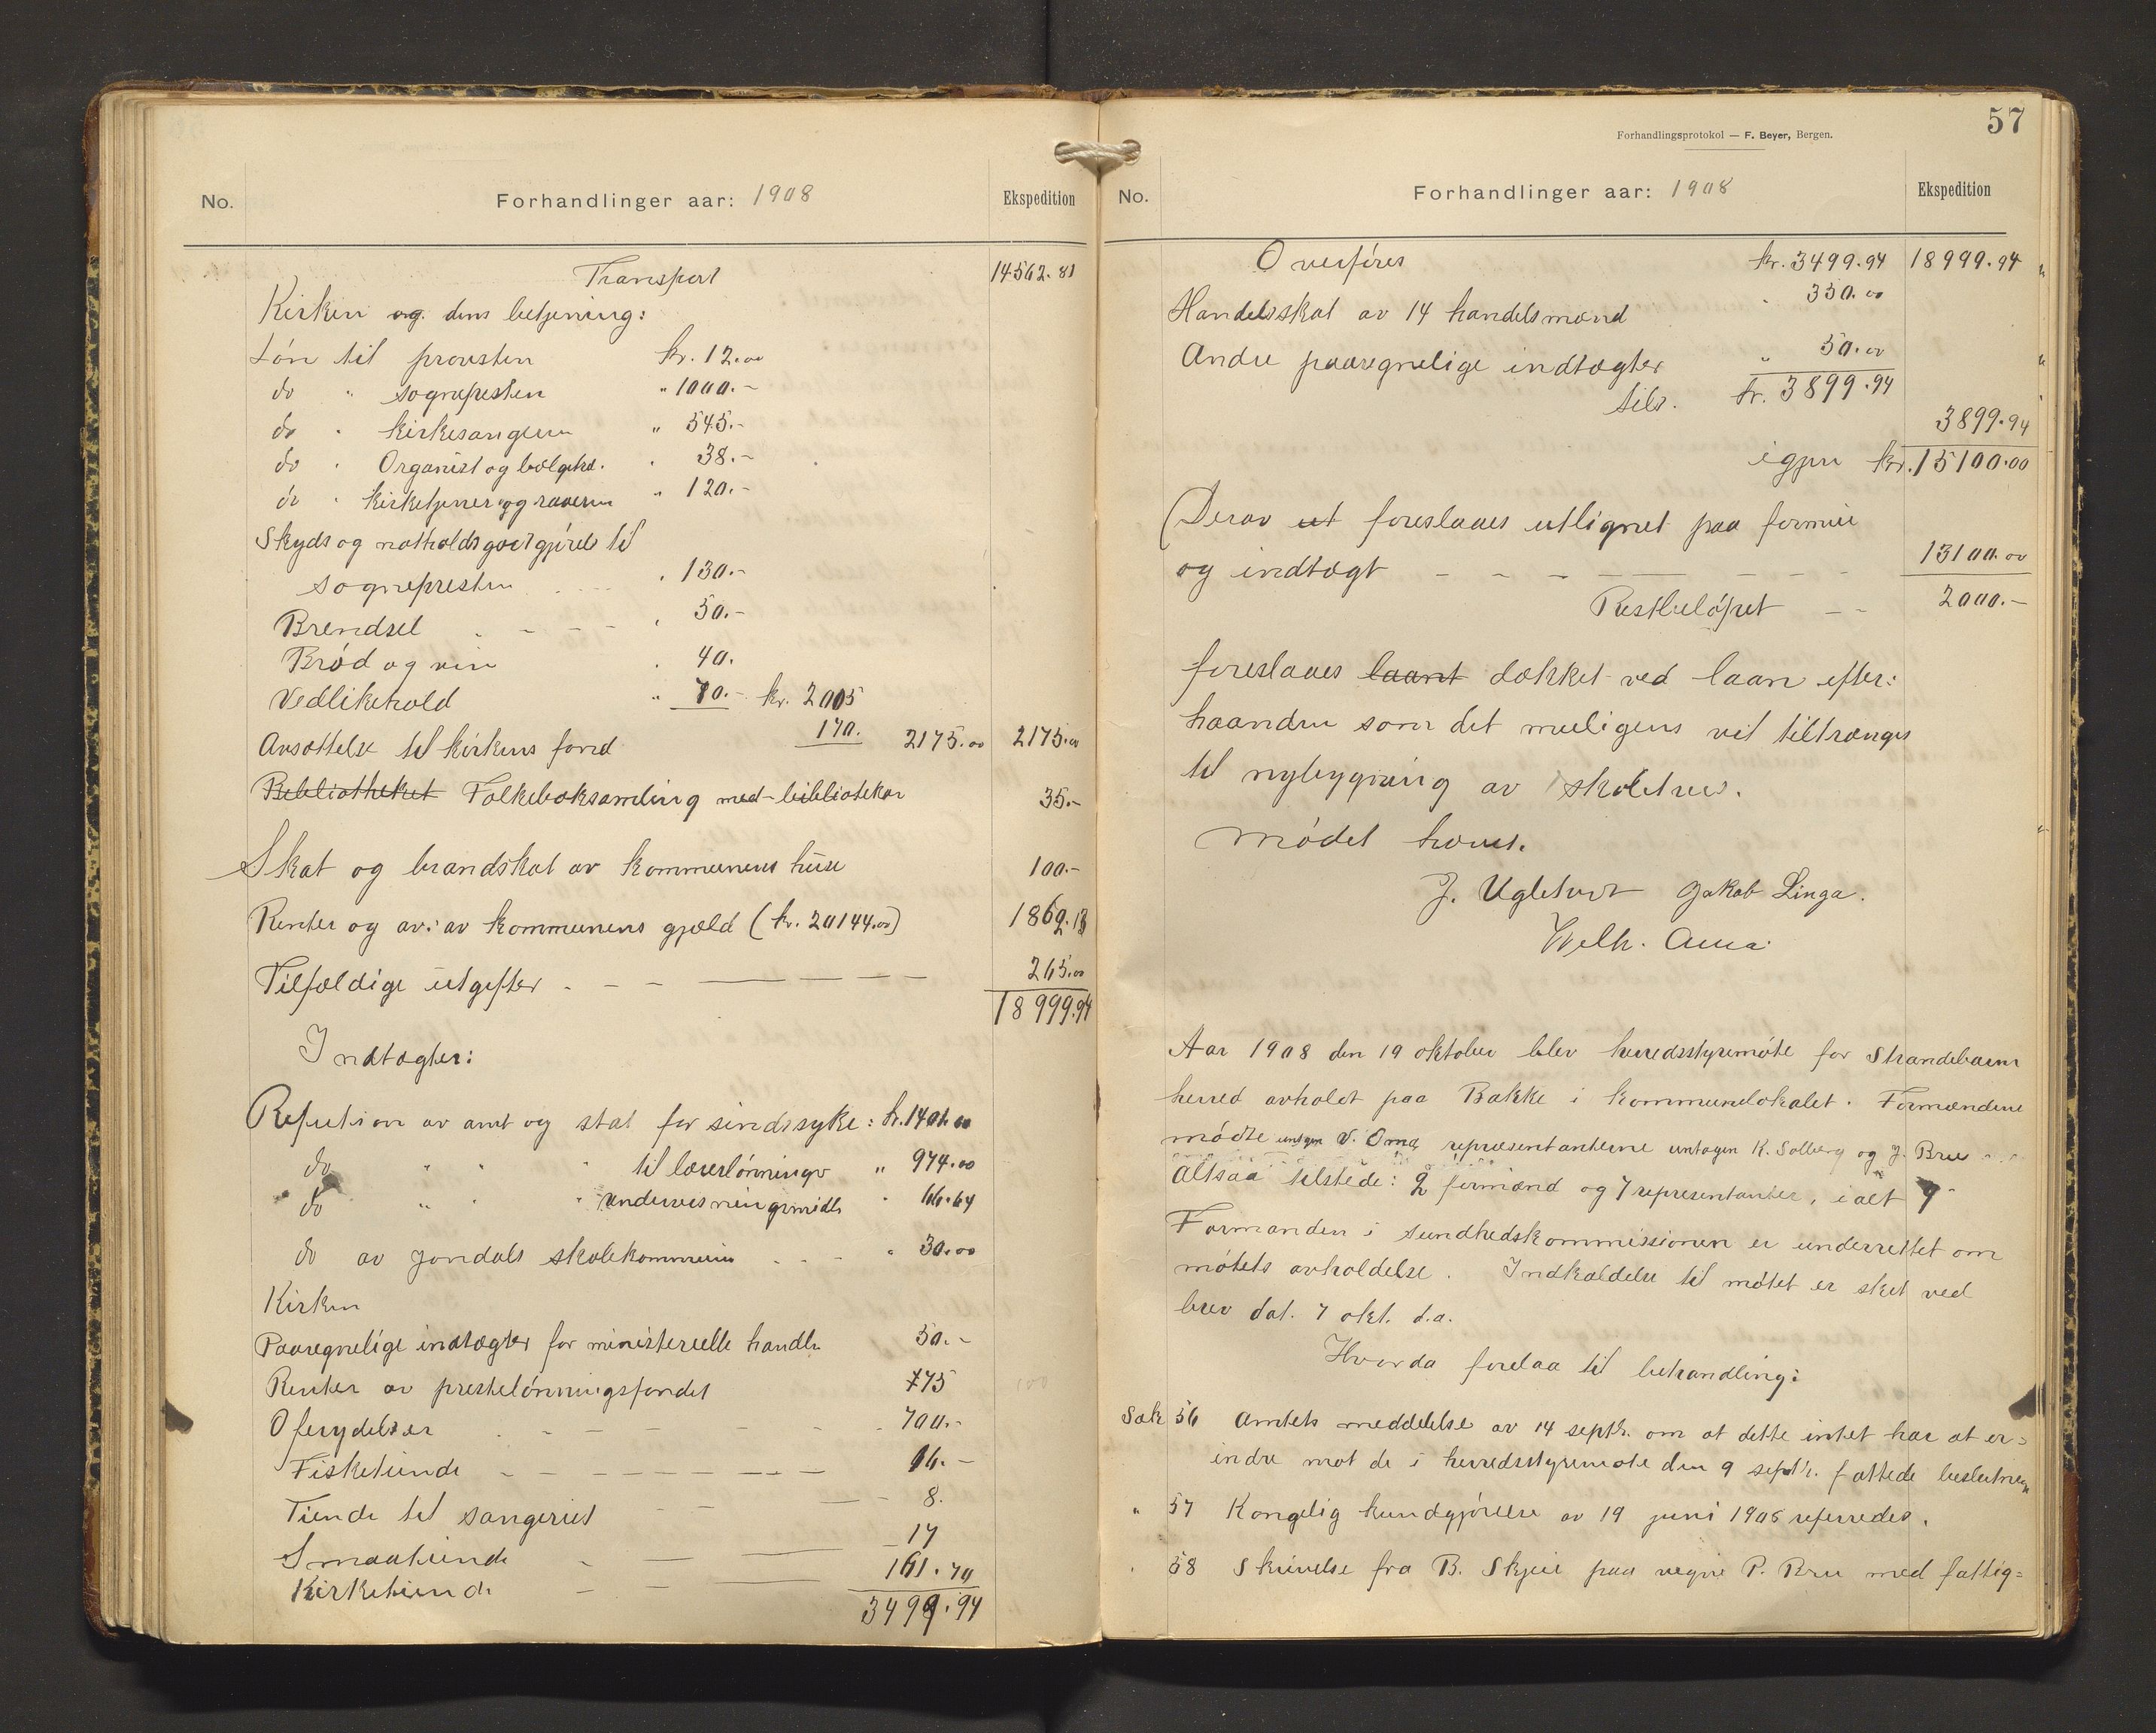 No. Forhandlinger aar: 1908 Ekspedition
Transport 14562.81
Kirken og dens betjening:
Løn til provsten kr. 12.00
do " sognepresten " 1000.-
do " kirkesangeren " 545.-
do " Organist og bælgetræ. " 38.-
do " kirketjener og graveren " 120.-
Skyds og natholdsgodtgjørels til
sognepresten " 130.-
Brendsel " 50.-
Brød og vin " 40.
Vedlikehold " 70.- kr. 2005
Avsættelse til kirkens fond 170. 2175.00 2175.00
Bibliotheket Folkeboksamling med bibliotekar 35.-
Skat og brandskat av kommunens huse 100.-
Renter og av: av kommunens gjæld (kr. 20144.00) 1862.13
Tilfældige utgifter 265.00
18999.94
Indtægter:
Refusion av amt og stat for sindssyke: kr. 1401.60
do " " " til lærerlønninger " 974.00
do " " " undervisningsmidler " 66.64
do av Jondals skolekommune " 30.00
Kirken
Paaregnelige indtægter for ministerielle handlr 50.-
Renter av prestelønningsfondet 775
Oferydelser 700.-
Fisketiende 16.-
Tiende til sangeriet 8.
Smaatiende 17
Kirketiende 161.70
3499.94
57
Forhandlingsprotokol — F. Beyer, Bergen.
No. Forhandlinger aar: 1908 Ekspedition
Overføres kr. 3499.94 18999.94
Handelsskat av 14 handelsmænd " 350.00
Andre paaregnelige indtægter " 50.00
tils. kr. 3899.94 3899.94
igjen kr. 15100.00
Derav ut foreslaaes utlignet paa formue
og indtægt 13100.00
Restbeløpet 2000.-
foreslaaes laant dækket ved laan efter:
haanden som det muligens vil tiltrænges
til nybygning av skolehus.
Mødet hævet.
J. Ugletveit Jakob Linga.
Wilh. Aura.
Aar 1908 den 19 oktober blev herredsstyremøte for Strandebarm
herred avholdt paa Bakke i kommunelokalet. Formændene
mødte untagen V. Oma, repræsentanterne untagen K. Solberg og J. Bru
Altsaa tilstede: 2 formænd og 7 representanter, i alt 9
Formanden i Sundhedskommissionen er underrettet om
møtets avholdelse. Indkaldelse til møtet er sket ved
brev dat. 7 okt. d.a.
Hvorda forelaa til behandling:
Sak 56 Amtets meddelelse av 14 septbr. om at dette intet har at er=
indre mot de i herredsstyremøte den 9 septbr. fattede beslutninger
" 57 Kongelig kundgjørelse av 19 juni 1908 referredes.
" 58 Skrivelse fra B. Skjeie paa vegne P. Bru med fattig=